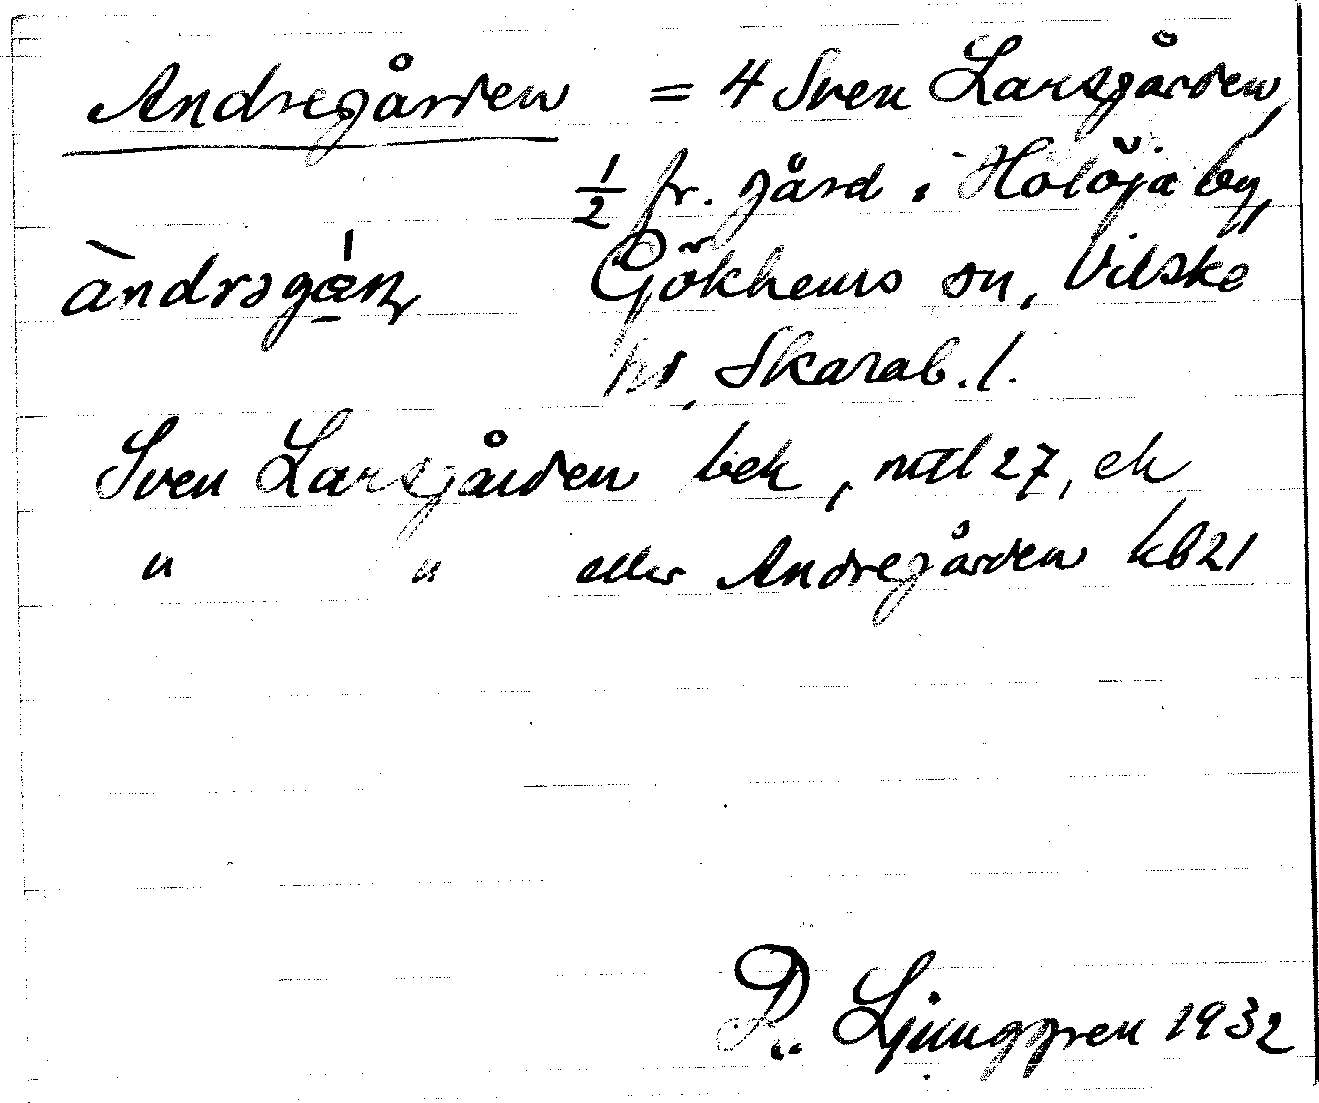 Andregården = 4 Sven Larsgården,
1/2 fr. gård i Holöja by,
àndrəgɑ̍ṇ Gökhems sn, Vilske
hd, Skarab. l.
Sven Larsgården bek, mtl 27, ek
" " eller Andregården kb 21
R. Ljunggren 1932